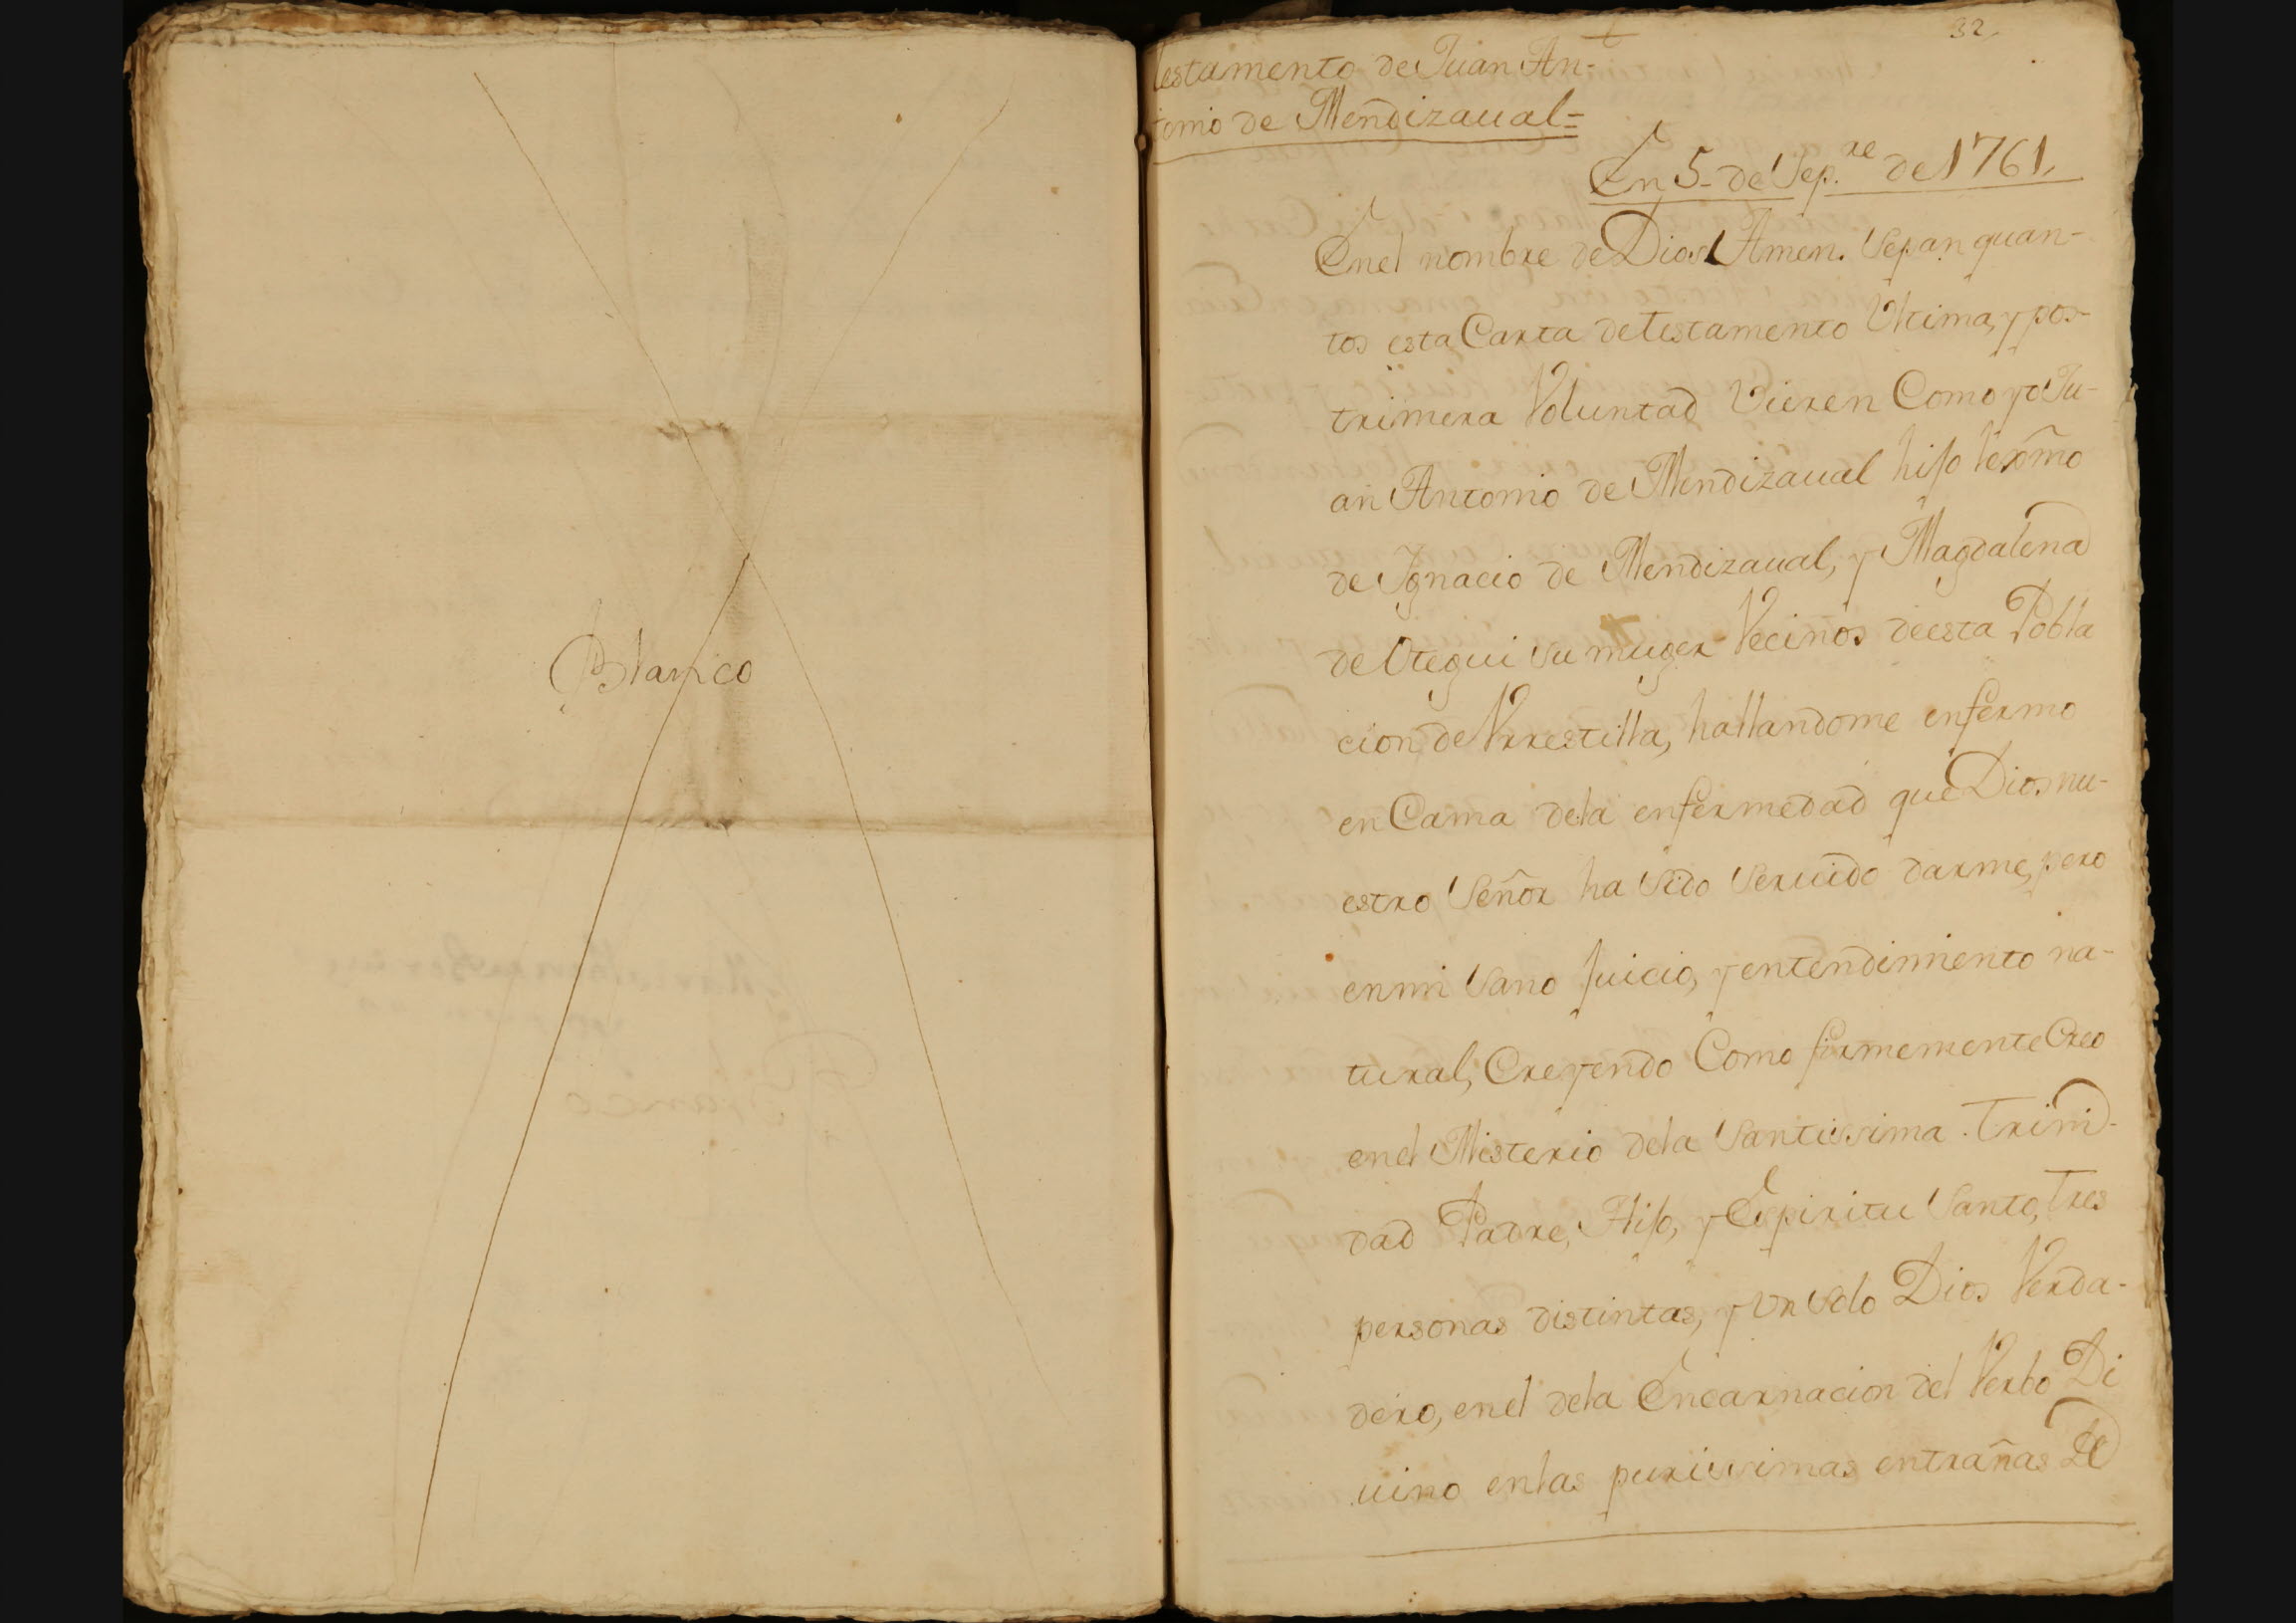 Blanco
32
Testamento de Juan An-
tonio de Mendizaual=
En 5 de Sep.re de 1761
En el nombre de Dios Amen. Sepan quan-
tos esta Carta de testamento Vltima, y pos-
trimera Voluntad Vieren Como yo Ju-
an Antonio de Mendizaual hijo lexmo
de Ygnacio de Mendizaual, y Magdalena
de Otegui su muger Vecinos de esta Pobla
cion de Vrrestilla, hallandome enfermo
en Cama dela enfermedad que Dios nu-
estro Señor ha sido seruido darme, pero
en mi sano Juicio, y entendimiento na-
tural, Creyendo Como firmemente Creo
en el Misterio dela Santissima Trini-
dad Padre, Hijo, y Espiritu Santo, tres
personas distintas, y un solo Dios Verda-
dero, en el dela Encarnacion del Verbo Di
uino en las purissimas entrañas de